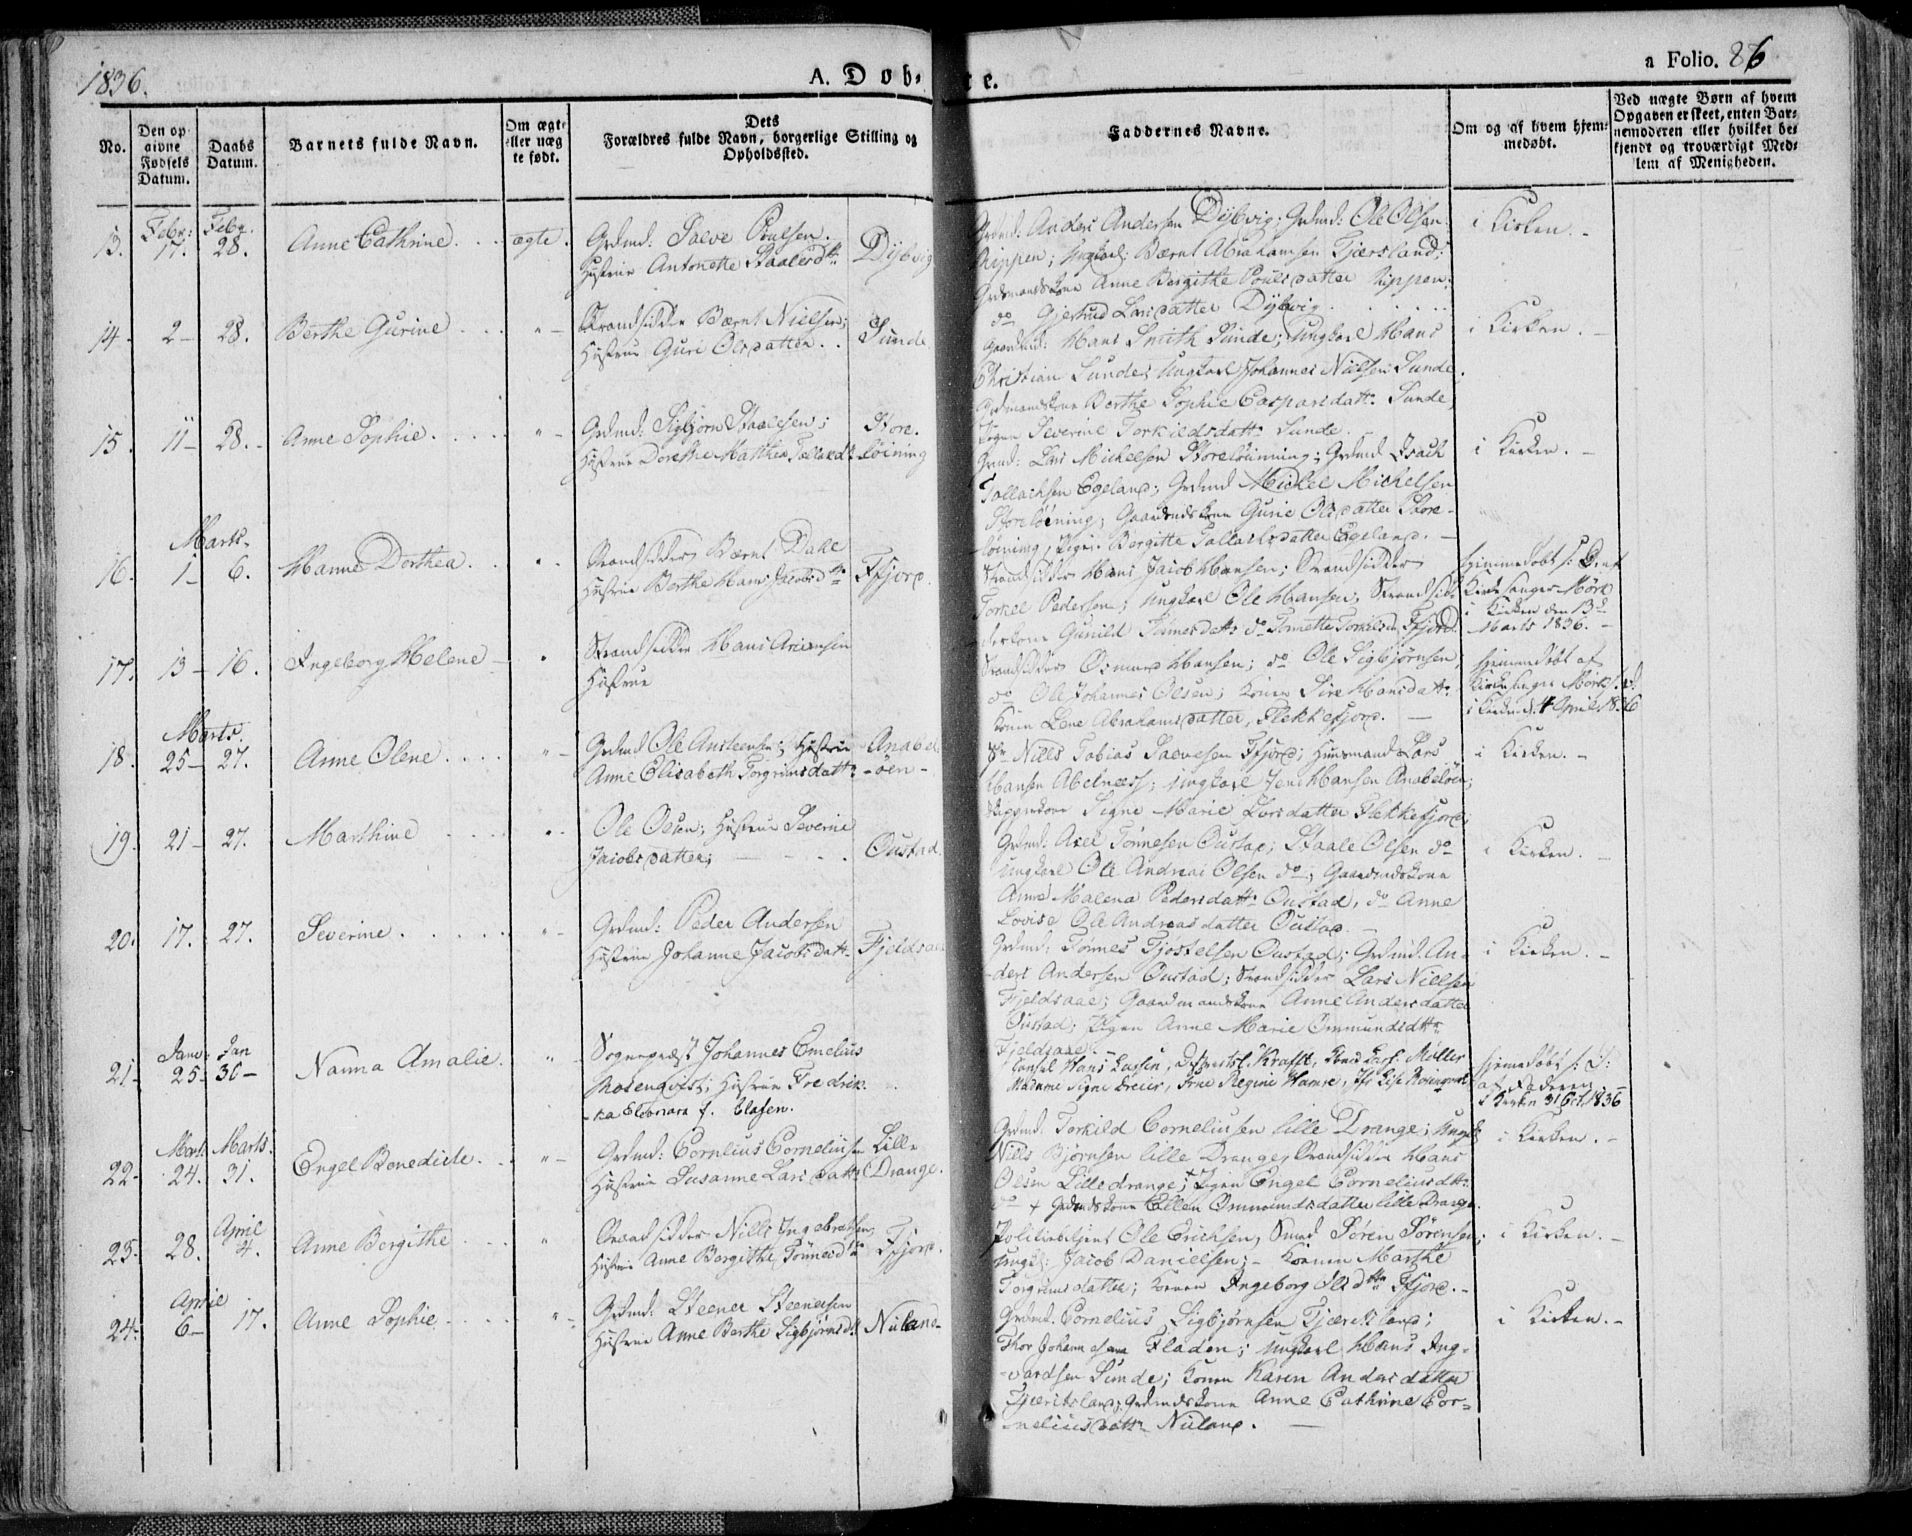 1836.
A. Døb-
te.
a Folio. 86
No.
Den op
givne
Fødsels
Datum.
Daabs
Datum.
Barnets fulde Navn.
Om ægte
eller uæg
te født.
Dets
Forældres fulde Navn, borgerlige Stilling og
Opholdssted.
Faddernes Navne.
Om og af hvem hjem-
medøbt.
Ved uægte Børn af hvem
Opgaven er skeet, enten Bar-
nemoderen eller hvilket be-
kjendt og troværdigt Med-
lem af Menigheden.
Febr: Febr.
13. 17. 28. Anne Cathrine. ægte.
Grdmd: Salve Poulsen.
Hustrue Antonette Staalesdtr
Dybvig
Grdmd: Anders Andersen Dybvig; Grdmd: Ole Olsen
Rippen; Ungkarl: Bærnt Abrahamsen Fjersland;
Grdmandskone Anne Bergithe Poulsdatter Rippen;
do Gjertrud Larsdatter Dybvig
i Kirken. -
14. 2- 28. Berthe Gurine
Strandsidder Bærnt Nielsen;
Hustrue Guri Olsdatter.
Sunde
Gaardmd: Hans Smith Sunde; Ungkarl Hans
Christian Sunde; Ungkarl Johannes Nielsen Sunde.
Grdmandskone Berthe Sophie Caspersdatt: Sunde,
Pigen Severine Torkildsdatt: Sunde.
i Kirken. -
15. 11- 28. Anne Sophie.
Grdmd: Sigbjørn Staalesen;
Hustrue Dorethe Mathea
Store-
løining
Grmd: Lars Michelsen Storeløinning; Grdmd Isach
Tollachsen Egeland; Grdmd Michel Michelsen
Storeløining; Gaardmdskone Gurie Olsdatter Store-
løining, Pigen Bergitte Tollachsdatter Egeland.
i Kirken. -
Marts.
16. 1- 6. Hanne Dorthea.
Strandsidder Bærnt Dahl
Hustrue Berthe Hans Jacobsdtr
Ffjord.
Strandsidder Hans Jacob Hansen; Strandsidder
Torkel Pedersen; Ungkarl Ole Hansen; Strandsid-
derkone Gunild do Tonette Ffjord.
Hjemmedøbt
Kirkesanger Mørk
i Kirken den 13de
Marts 1836. -
17. 13- 16. Ingeborg Helene
Strandsidder Hans
Hustrue
Strandsidder Osmund Hansen; do Ole Sigbjørnsen,
do Ole Johannes Olsen; Konen Sire Hansdatt:
Konen Lene Abrahamsdatter, Flekkefjord.
hjemmedøbt af
Kirkesanger Mørk
i Kirken d. 4 April 1836
Marts.
18. 25- 27. Anne Olene.
Grdmd Ole Austensen; Hustrue
Anne Elisabeth Torgrimsdatt:
Anabel-
øen-
Nills Tobias Salvesen Ffjord; Huusmand Lars
Hansen Abelnæss; Ungkarl Jens Hansen Anabeløen;
Skipperkone Signe Marie Larsdatter Flekkefjord;
i Kirken. -
19. 21- 27. Marthine
Ole Olsen; Hustrue Severine
Jacobsdatter;
Oustad.
Grdmd: Axel Tønnesen Oustad; Staale Olsen do
Ungkarl Ole Andreas Olsen do; Gaardmdskone
Anne Malena Pedersdatt: Oustad, do Anne
Lovise Ole Andreasdatter Oustad.
i Kirken. -
20. 17. 27. Severine.
Grdmd: Peder Andersen
Hustrue Johanne Jacobsdatt:
Fjeldsaae
Grdmd: Tønnes Tjostelsen Oustad; Grdmd An-
ders Andersen Oustad; Strandsidder Lars Nielsen
Fjeldsaae; Gaardmandskone Anne Andersdatter
Oustad; Pigen Anne Marie Ommundsdtr
Fjeldsaae. -
i Kirken. -
Janu: Jan
21- 25- 30- Nanna Amalie.
Sognepræst Johannes Emelius
Rosenqvist; Hustrue Fredrik-
ka f. Clasen.
Consul Hans Larsen, Krafft, Møller
Madame Signe Breier, Frue Regine Hamre, Jfr Lise Rosenqvist
hjemmedøbt
af Faderen
i Kirken 31 Oct. 1836
Marts Marts.
22. 24. 31. Engel Benedicte.
Grdmd: Cornelius Corneliusen
Hustrue Susanne Larsdatt:
Lille
Drange.
Grdmd: Torkild Corneliusen lille Drange; Ungk:
Nills Bjørnsen lille Drange, Strandsidder Hans
Olsen Lilledrange; + Pigen Engel Corneliusdtr
do + Grdmdskone Ellen Ommundsdatter lille Drange.
i Kirken. -
April
23. 28. 4. Anne Bergithe
Strandsidder Nills Ingebretsen,
Hustrue Anne Bergithe Tønnesdtr
Ffjord.
Politiebetjent Ole Erichsen, Smed Søren Sørensen;
Ungk: Jacob Danielsen; - Konen Marthe
Torgrimsdatter; Konen Ingeborg Olsdtr Ffjord. -
i Kirken. -
April
24. 6- 17. Anne Sophie
Grdmd: Steener Steenersen
Hustrue Anne Berthe Sigbjørnsdt:
Nuland-
Grdmd: Cornelius Sigbjørnsen Fjersland;
Thor Johannesen Fladen; Ungkarl Hans Ing-
vardsen Sunde; Konen Karen Andersdatter
Grdmdskone Anne Cathrine Cor-
neliusdattr Nuland. -
i Kirken. -